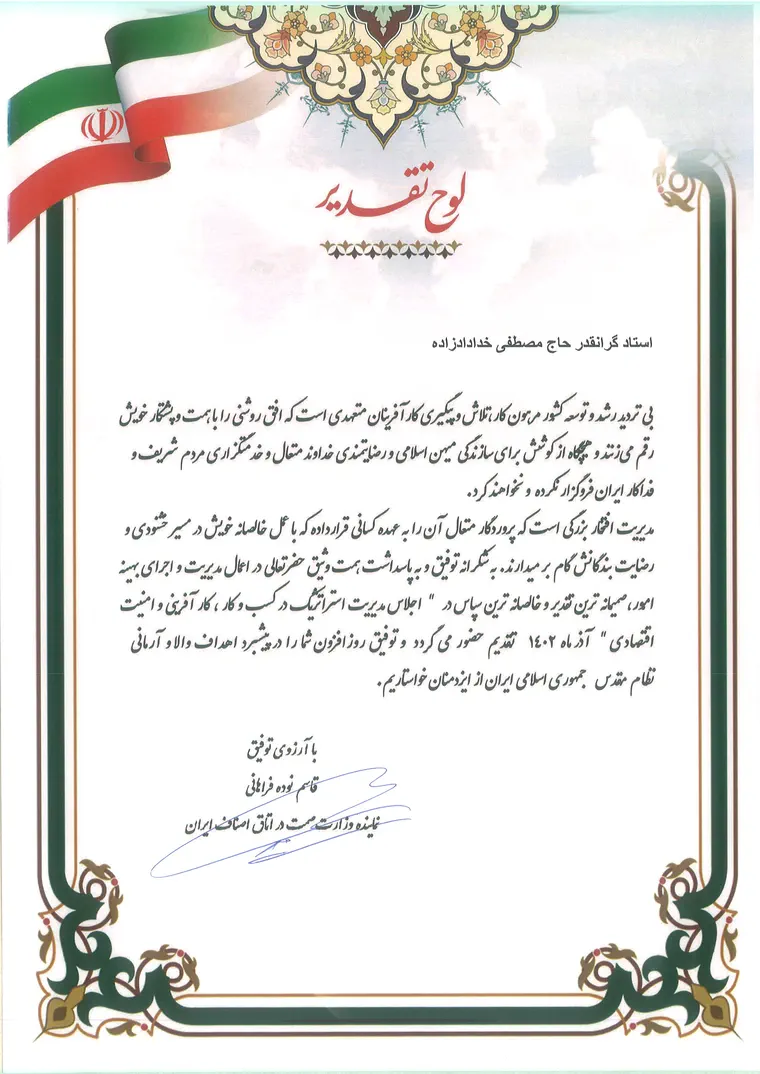 لوح تقدیر
استاد گرانقدر حاج مصطفی خدادادزاده
بی تردید رشد و توسعه کشور مرهون کار، تلاش و پیگیری کارآفرینان متعهدی است که افق روشنی را با همت و پشتکار خویش
رقم می‌زنند و هیچگاه از کوشش برای سازندگی میهن اسلامی و رضایتمندی خداوند متعال و خدمتگزاری مردم شریف و
فداکار ایران فروگزار نکرده و نخواهند کرد.
مدیریت افتخار بزرگی است که پروردگار متعال آن را به عهده کسانی قرار داده که با عمل خالصانه خویش در مسیر خشنودی و
رضایت بندگانش گام بر میدارند. به شکرانه توفیق و به پاسداشت همت وثیق حضرتعالی در اعمال مدیریت و اجرای بهینه
امور، صمیمانه ترین تقدیر و خالصانه ترین سپاس در " اجلاس مدیریت استراتژیک در کسب و کار ، کار آفرینی و امنیت
اقتصادی " آذر ماه ۱۴۰۲ تقدیم حضور می گردد و توفیق روز افزون شما را در پیشبرد اهداف والا و آرمانی
نظام مقدس جمهوری اسلامی ایران از ایزدمنان خواستاریم.
با آرزوی توفیق
قاسم نوده فراهانی
نماینده وزارت صمت در اتاق اصناف ایران